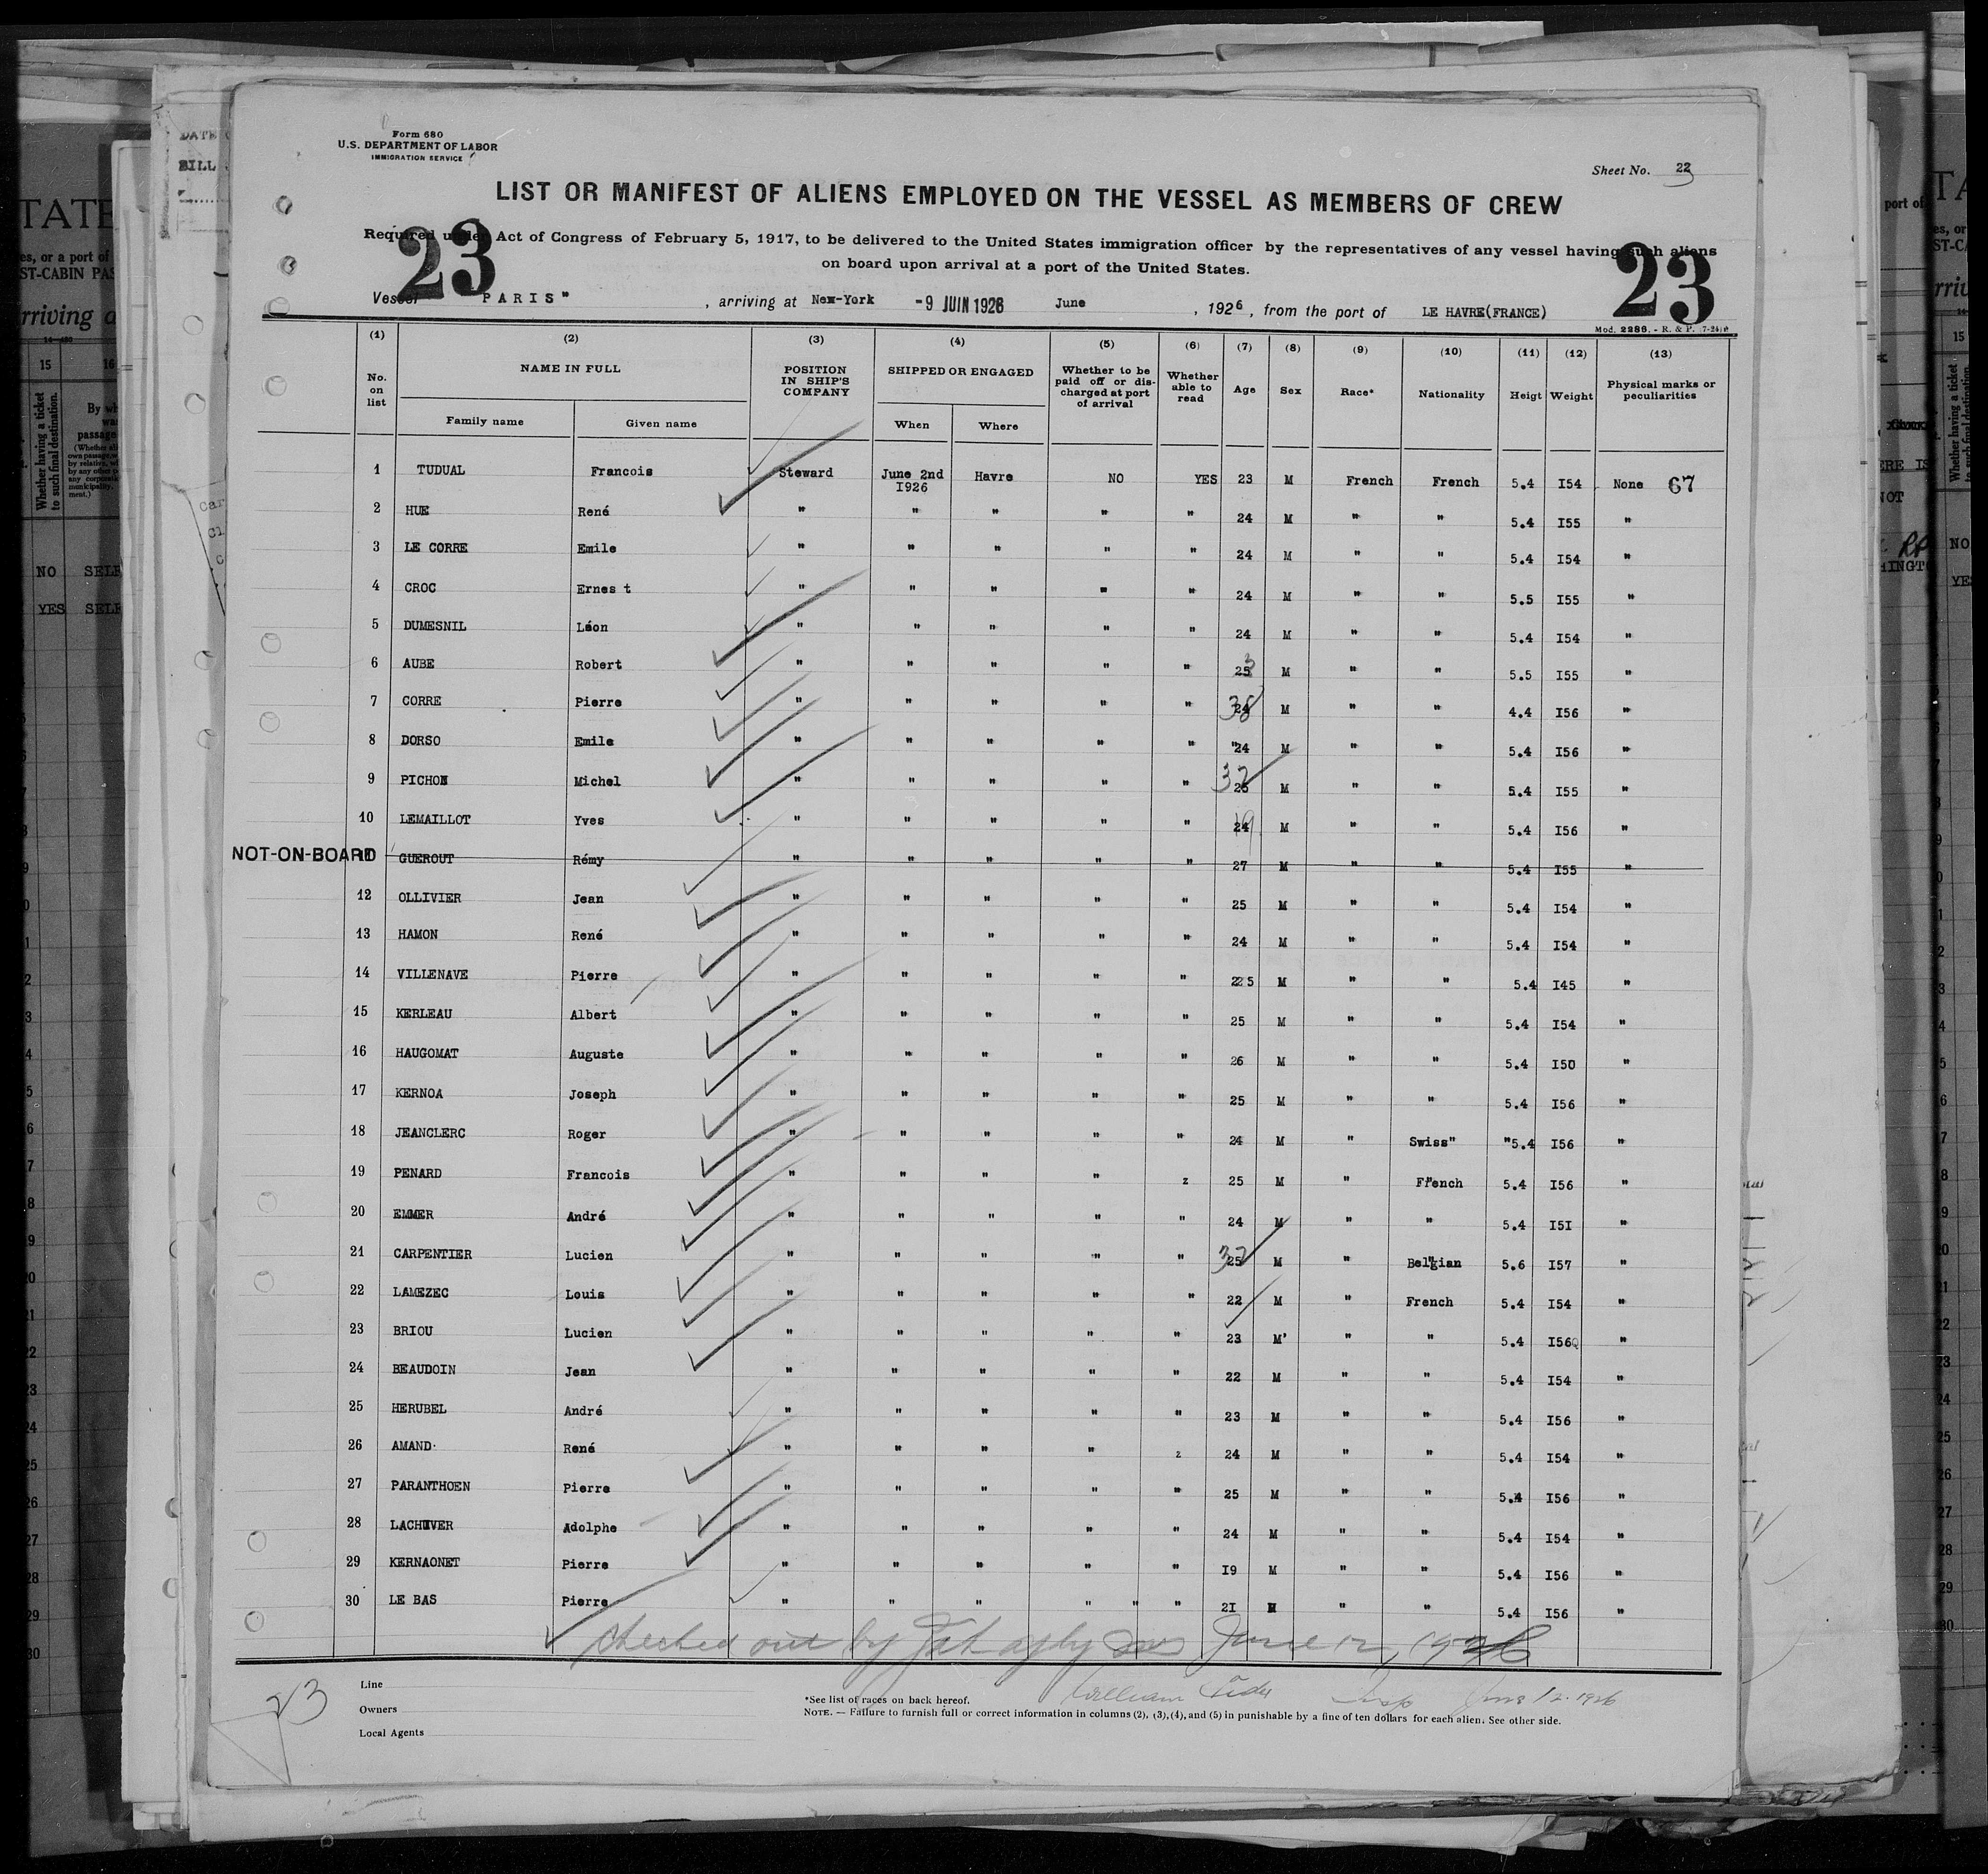 Form 680
U.S. DEPARTMENT OF LABOR
IMMIGRATION SERVICE
Sheet No. 23
LIST OR MANIFEST OF ALIENS EMPLOYED ON THE VESSEL AS MEMBERS OF CREW
23 23
Required under Act of Congress of February 5, 1917, to be delivered to the United States immigration officer by the representatives of any vessel having such aliens
on board upon arrival at a port of the United States.
Vessel PARIS" , arriving at New-York -9 JUIN 1926 June , 1926 , from the port of LE HAVRE(FRANCE)
Mod. 2286. - R. & P. 7-24
(1) (2) (3) (4) (5) (6) (7) (8) (9) (10) (11) (12) (13)
No. on list NAME IN FULL Family name Given name POSITION IN SHIP'S COMPANY SHIPPED OR ENGAGED When Where Whether to be paid off or discharged at port of arrival Whether able to read Age Sex Race* Nationality Heigt Weight Physical marks or peculiarities
1 TUDUAL Francois Steward June 2nd I926 Havre NO YES 23 M French French 5.4 I54 None 67
2 HUE René " " " " " 24 M " " 5.4 I55 "
3 LE CORRE Emile " " " " " 24 M " " 5.4 I54 "
4 CROC Ernes t " " " " " 24 M " " 5.5 I55 "
5 DUMESNIL Léon " " " " " 24 M " " 5.4 I54 "
6 AUBE Robert " " " " " 25 3 M " " 5.5 I55 "
7 CORRE Pierre " " " " " 24 38 M " " 4.4 I56 "
8 DORSO Emile " " " " " "24 M " " 5.4 I56 "
9 PICHON Michel " " " " " 32 25 M " " 5.4 I55 "
10 LEMAILLOT Yves " " " " " 24 19 M " " 5.4 I56 "
NOT-ON-BOARD 11 GUEROUT Rémy " " " " " 27 M " " 5.4 I55 "
12 OLLIVIER Jean " " " " " 25 M " " 5.4 I54 "
13 HAMON René " " " " " 24 M " " 5.4 I54 "
14 VILLENAVE Pierre " " " " " 225 M " " 5.4 I45 "
15 KERLEAU Albert " " " " " 25 M " " 5.4 I54 "
16 HAUGOMAT Auguste " " " " " 26 M " " 5.4 I50 "
17 KERNOA Joseph " " " " " 25 M " " 5.4 I56 "
18 JEANCLERC Roger " " " " " 24 M " Swiss" "5.4 I56 "
19 PENARD Francois " " " " z 25 M " French 5.4 I56 "
20 EMMER André " " " " " 24 M " " 5.4 I5I "
21 CARPENTIER Lucien " " " " " 32 25 M " Belgian 5.6 I57 "
22 LAMEZEC Louis " " " " " 22 M " French 5.4 I54 "
23 BRIOU Lucien " " " " " 23 M' " " 5.4 I56 "
24 BEAUDOIN Jean " " " " " 22 M " " 5.4 I54 "
25 HERUBEL André " " " " " 23 M " " 5.4 I56 "
26 AMAND René " " " " z 24 M " " 5.4 I54 "
27 PARANTHOEN Pierre " " " " " 25 M " " 5.4 I56 "
28 LACHUVER Adolphe " " " " " 24 M " " 5.4 I54 "
29 KERNAONET Pierre " " " " " I9 M " " 5.4 I56 "
30 LE BAS Pierre " " " " " " 2I M " " 5.4 I56 "
checked out by June 12, 1926
23
Line
Owners
Local Agents
William Insp June 12. 1926
*See list of races on back hereof.
NOTE. — Failure to furnish full or correct information in columns (2), (3), (4), and (5) in punishable by a fine of ten dollars for each alien. See other side.